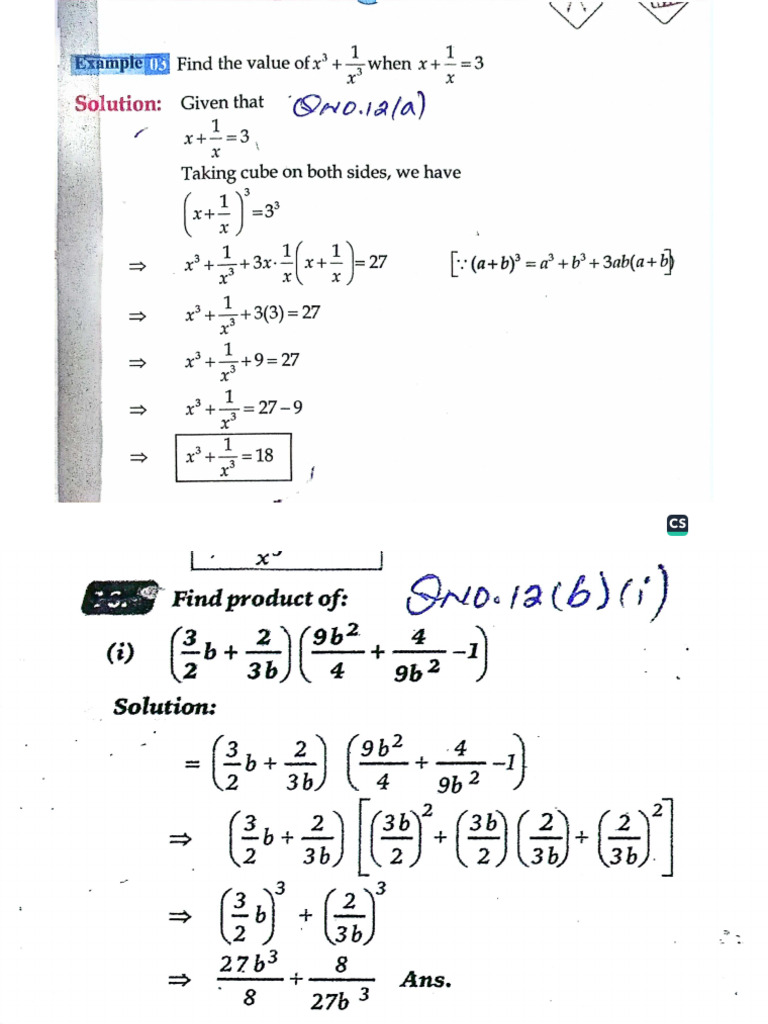 Example 03 Find the value of x³ + 1/x³ when x + 1/x = 3
Solution: Given that QNO.12(a)
x + 1/x = 3
Taking cube on both sides, we have
(x + 1/x)³ = 3³
⇒ x³ + 1/x³ + 3x · 1/x (x + 1/x) = 27 [∵ (a + b)³ = a³ + b³ + 3ab(a + b)]
⇒ x³ + 1/x³ + 3(3) = 27
⇒ x³ + 1/x³ + 9 = 27
⇒ x³ + 1/x³ = 27 – 9
⇒ x³ + 1/x³ = 18
CS
x³
Find product of: QNO.12(b)(i)
(i) (3/2 b + 2/3b) (9b²/4 + 4/9b² –1)
Solution:
= (3/2 b + 2/3b) (9b²/4 + 4/9b² –1)
⇒ (3/2 b + 2/3b) [(3b/2)² + (3b/2) (2/3b) + (2/3b)²]
⇒ (3/2 b)³ + (2/3b)³
⇒ 27b³/8 + 8/27b³ Ans.